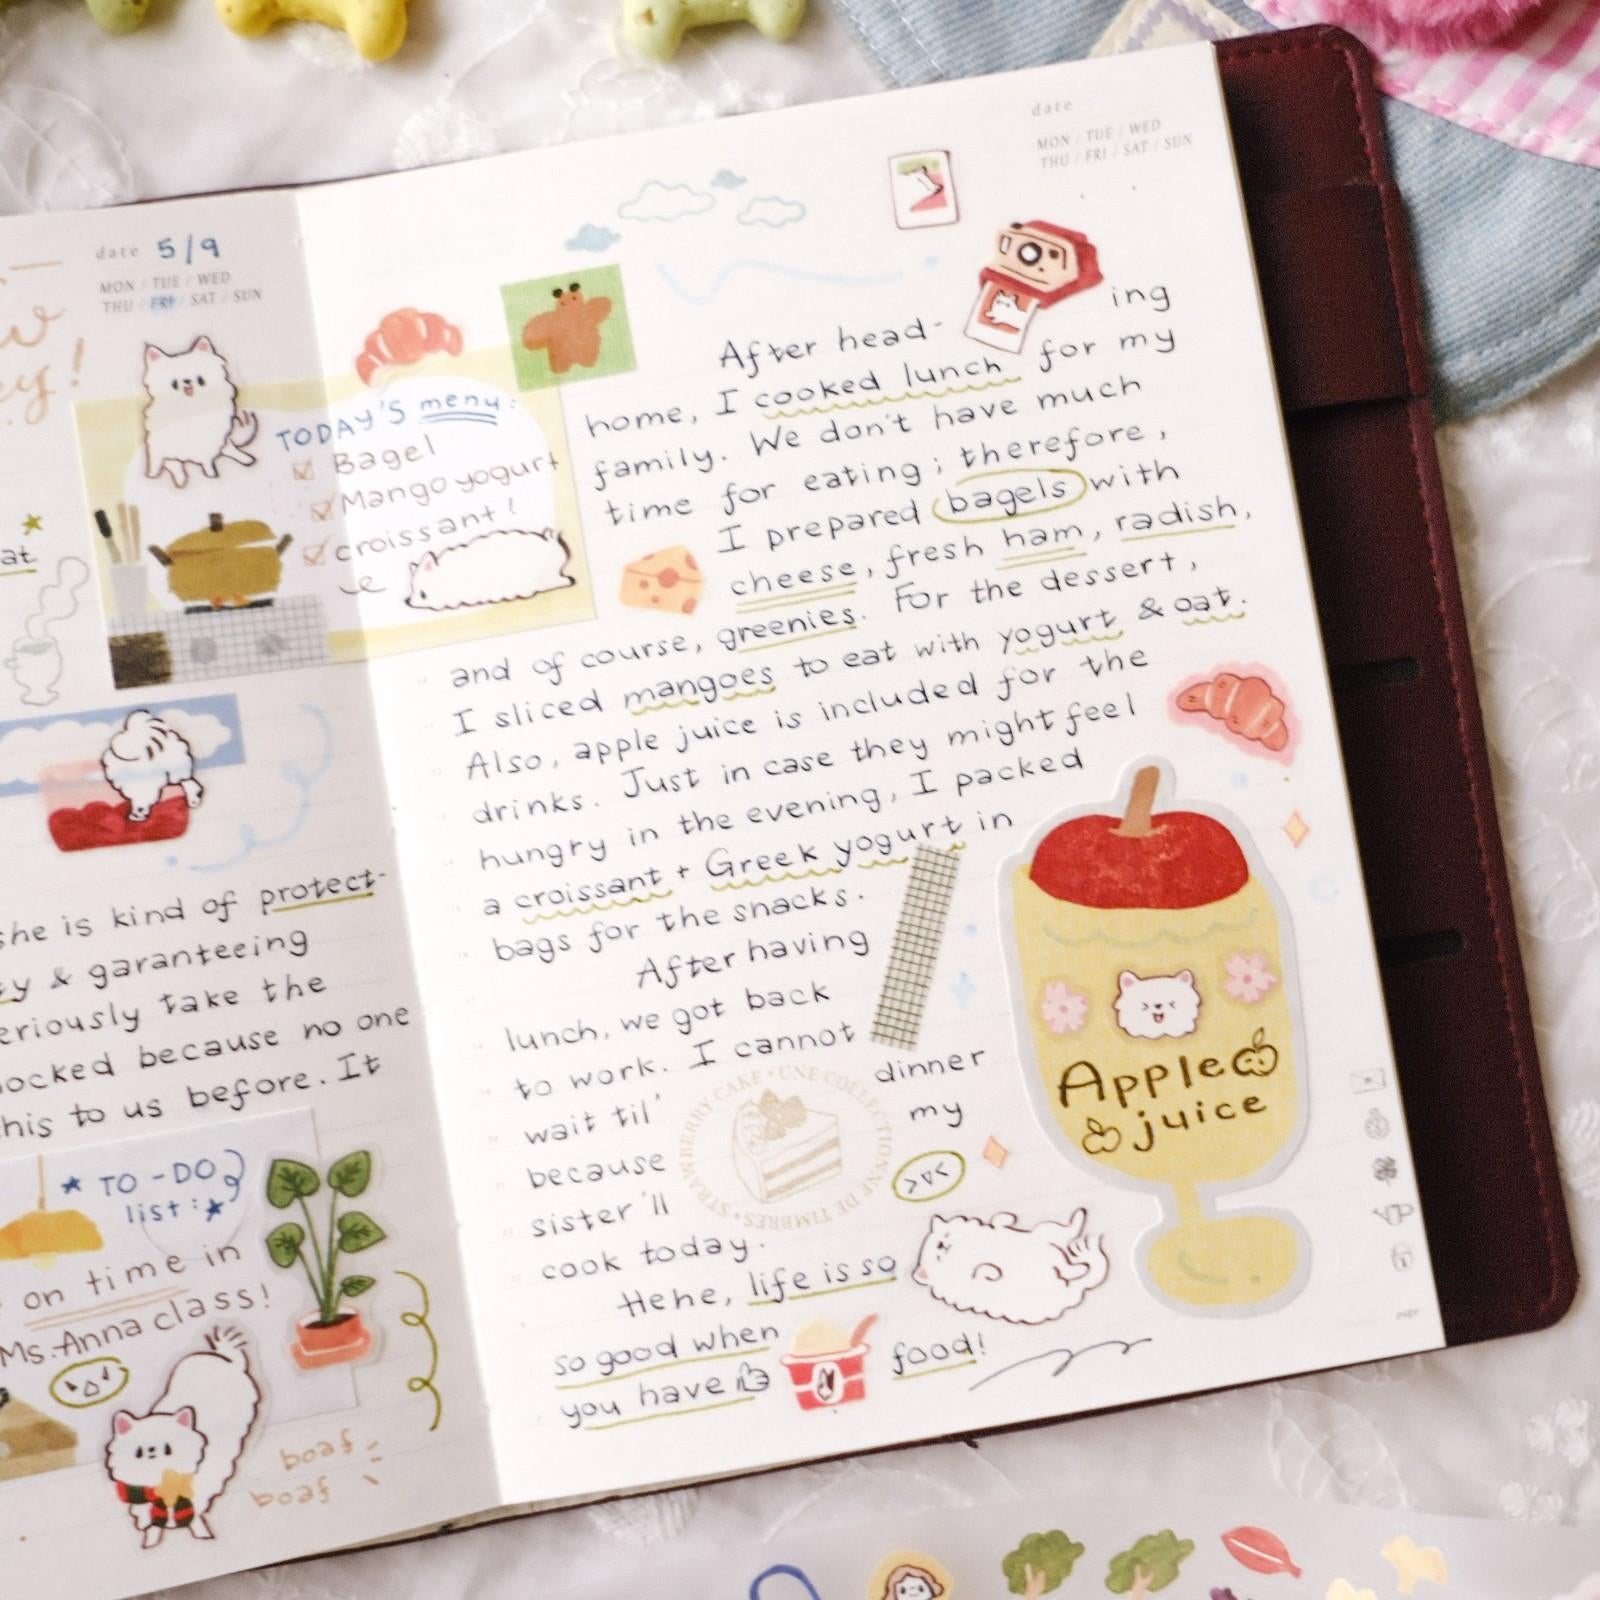 ey!
date 5/9
MON / TUE / WED
THU / FRI / SAT / SUN
TODAY'S menu:
Bagel
Mango yogurt
croissant!
at
she is kind of protect-
y & garanteeing
eriously take the
ocked because no one
his to us before. It
TO-DO
list:
on time in
Ms. Anna class!
boaf
boaf
date
MON / TUE / WED
THU / FRI / SAT / SUN
After head- ing
home, I cooked lunch for my
family. We don't have much
time for eating; therefore,
I prepared bagels with
cheese, fresh ham, radish,
and of course, greenies. For the dessert,
I sliced mangoes to eat with yogurt & oat.
Also, apple juice is included for the
drinks. Just in case they might feel
hungry in the evening, I packed
a croissant + Greek yogurt in
bags for the snacks.
After having
lunch, we got back
to work. I cannot
wait til' dinner
because my
sister'll
cook today.
Hehe, life is so
so good when
you have food!
STRAWBERRY CAKE • UNE COLLECTION DE TIMBRES •
Apple
juice